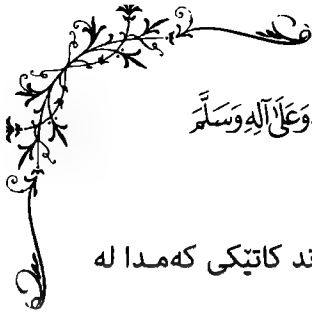 وَعَلَىٰ آلِهِ وَسَلَّمَ
ند کاتێکی کەمدا لە